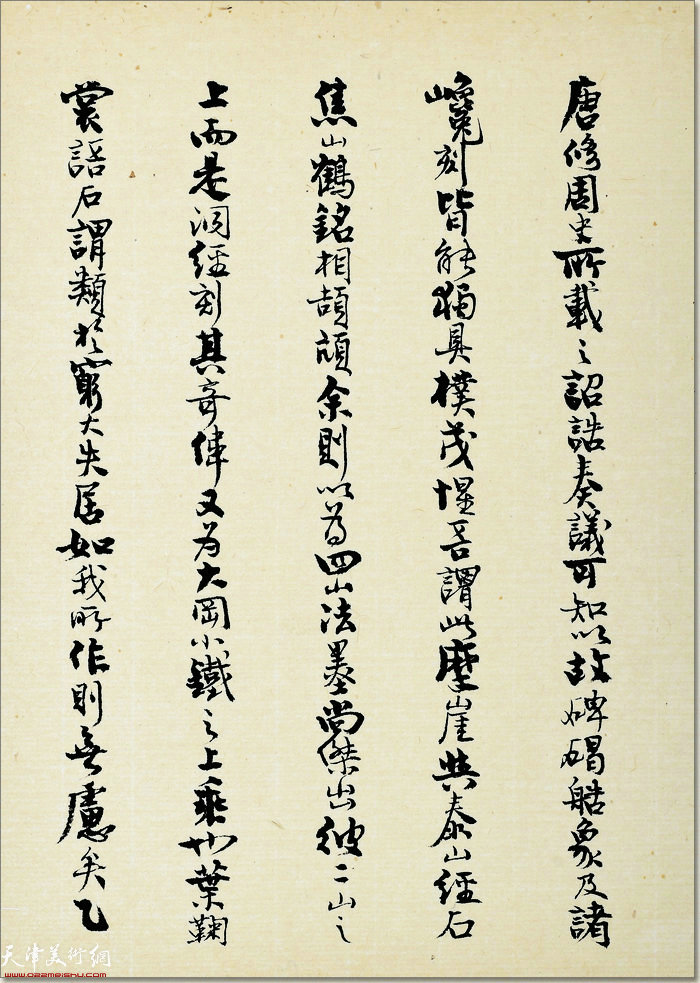 唐修周史所載之詔誥奏議可知以故碑碣
象及諸
巉刻皆能獨具樸茂惺吾謂此摩崖與泰山經石
焦山鶴銘相頡頏余則以為四山法墨尚傑出彼二山之
上而是洞經刻其奇偉又為大岡小鐵之上乘也葉鞠
裳語石謂類於窮大失居如我所作則無慮矣乙
天津美術網
www.022meishu.com